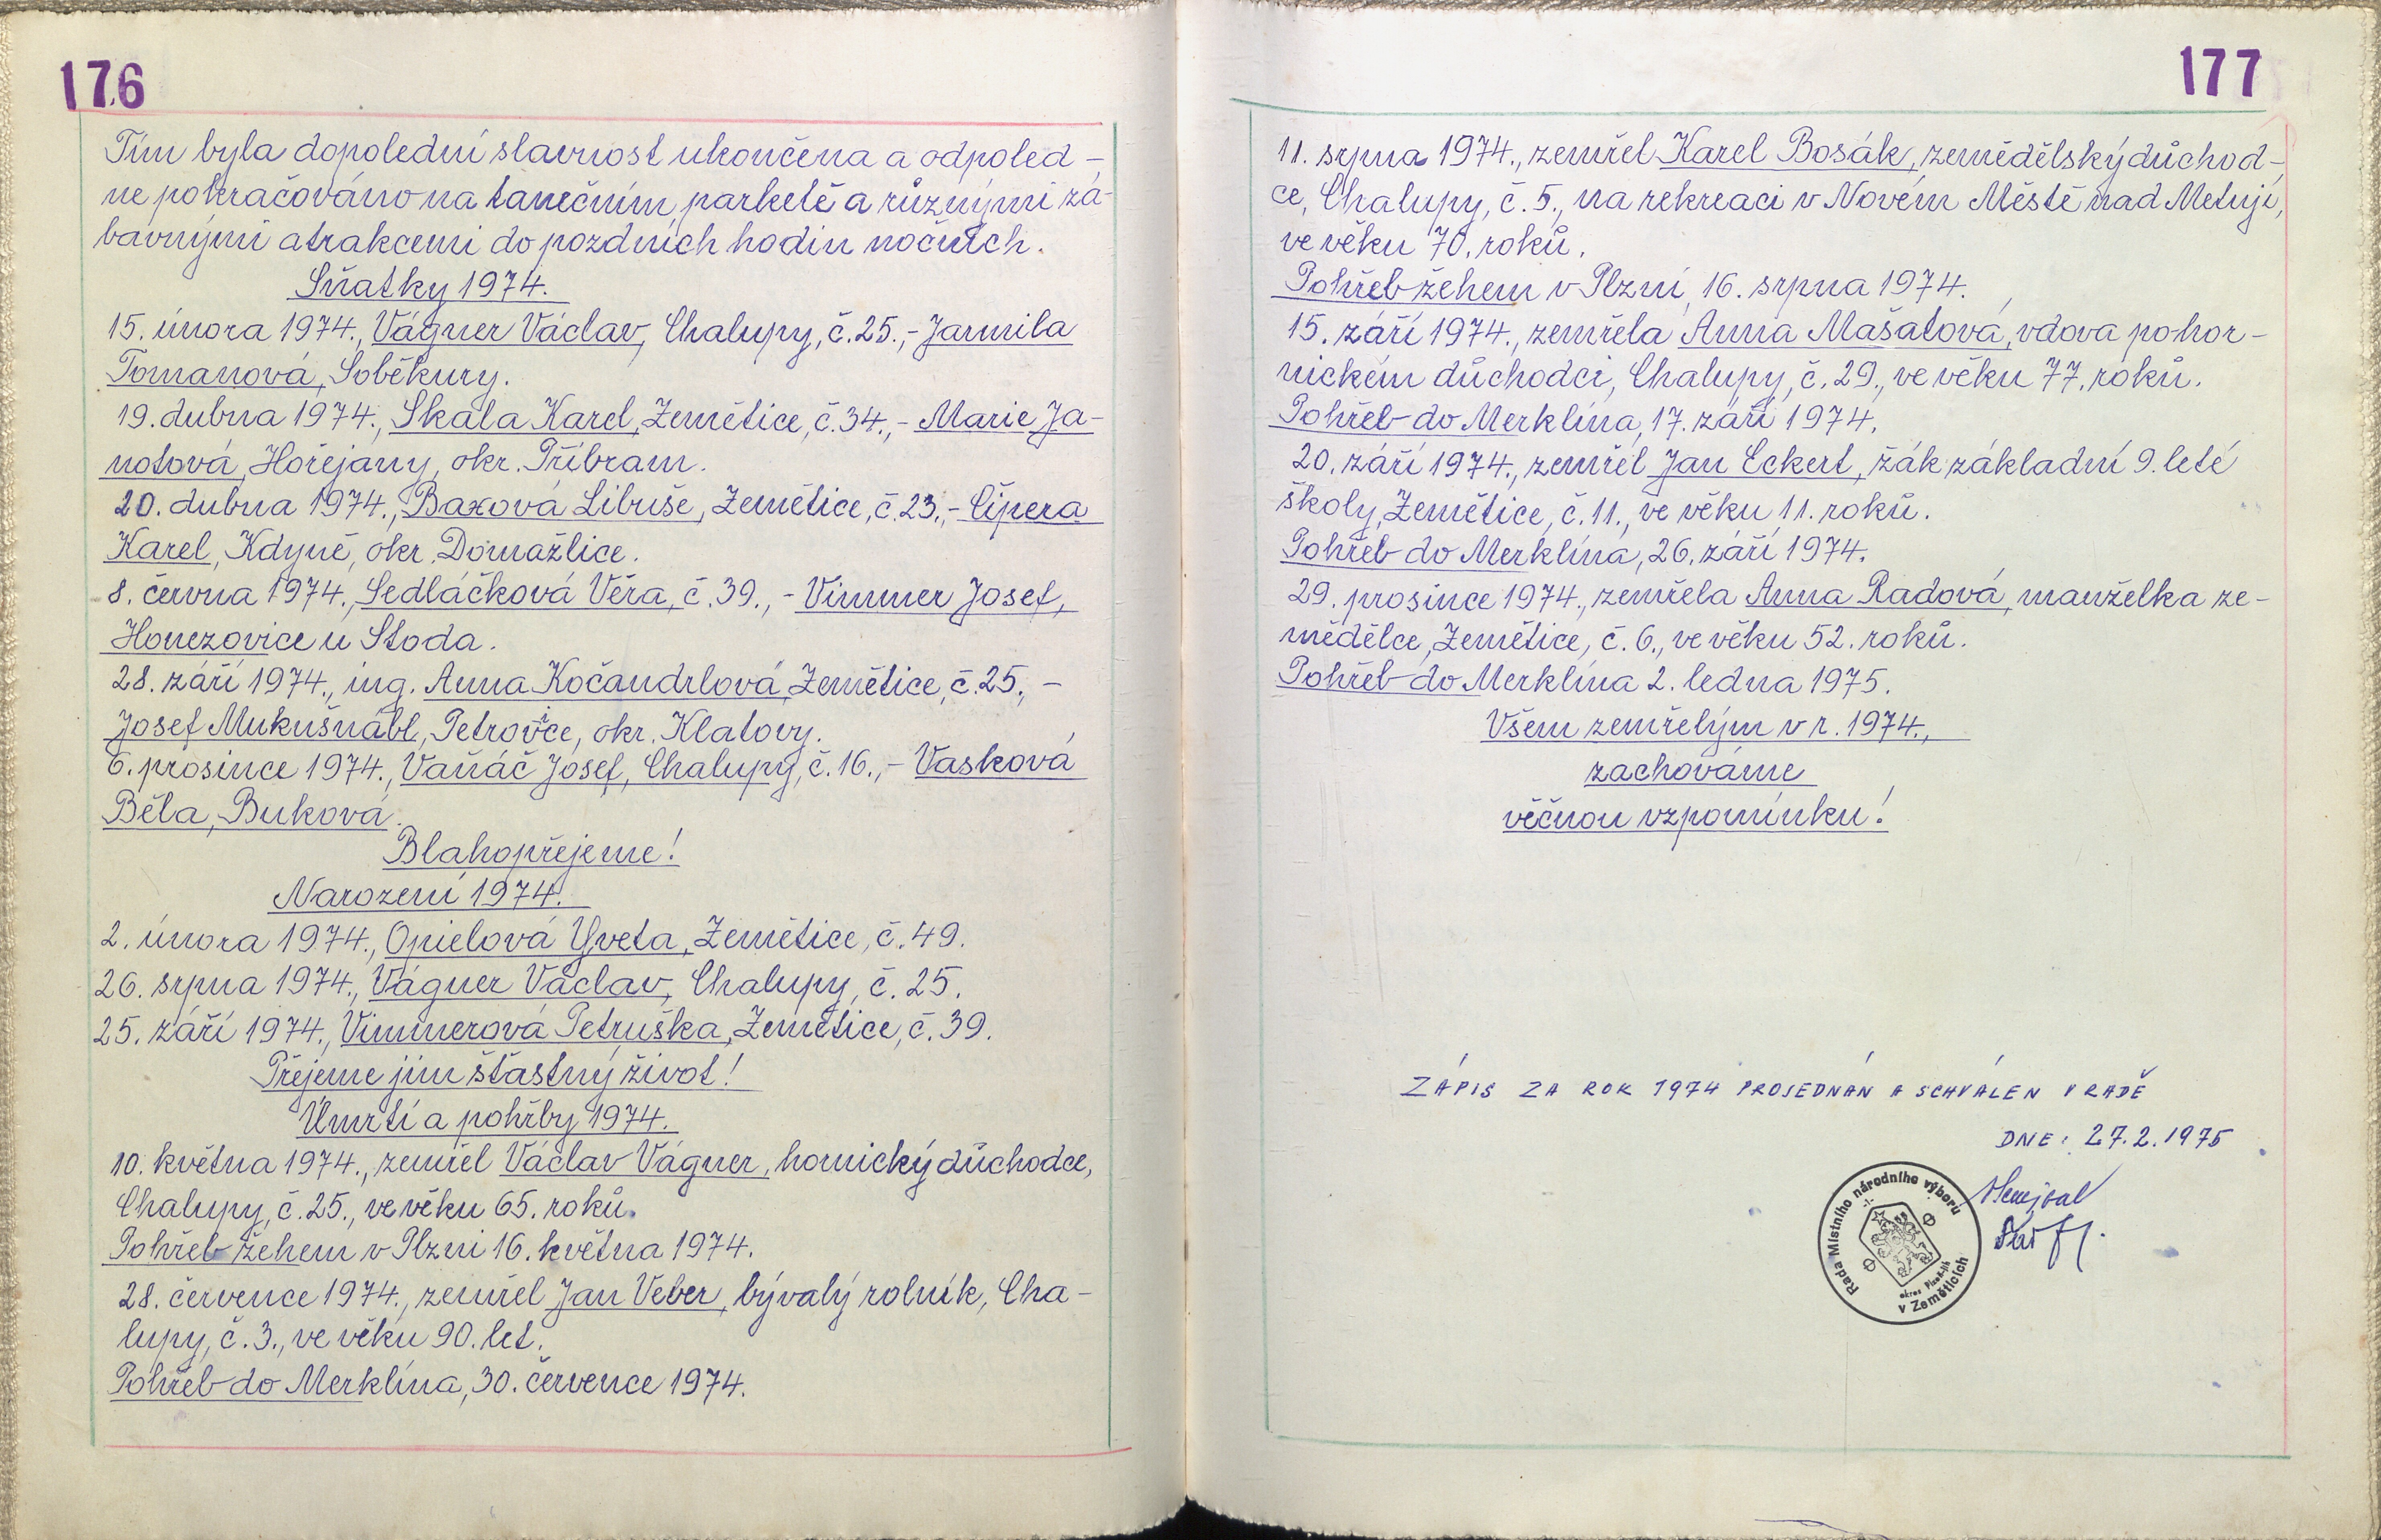 176
Tím byla dopolední slavnost ukončena a odpoled-
ne pokračováno na tanečním parketě a různými zá-
bavnými atrakcemi do pozdních hodin nočních.
Sňatky 1974.
15. února 1974., Vágner Václav, Chalupy, č.25.,- Jarmila
Tomanová, Soběkury.
19. dubna 1974., Skala Karel, Zemětice, č.34.,- Marie Ja-
notová, Hořejany, okr. Příbram.
20. dubna 1974., Baxová Libuše, Zemětice, č.23.,- Čipera
Karel, Kdyně, okr. Domažlice.
8. června 1974., Sedláčková Věra, č.39.,- Vimmer Josef,
Honezovice u Stoda.
28. září 1974., ing. Anna Kočandrlová, Zemětice, č.25., -
Josef Mukušnábl, Petrovice, okr. Klatovy.
6. prosince 1974., Vaňáč Josef, Chalupy, č.16.,- Vasková
Běla, Buková.
Blahopřejeme!
Narození 1974.
2. února 1974., Opielová Yveta, Zemětice, č.49.
26. srpna 1974., Vágner Václav, Chalupy, č. 25.
25. září 1974., Vimmerová Petruška, Zemětice, č.39.
Přejeme jim šťastný život!
Úmrtí a pohřby 1974.
10. května 1974., zemřel Václav Vágner, hornický důchodce,
Chalupy, č.25., ve věku 65. roků.
Pohřeb žehem v Plzni 16. května 1974.
28. července 1974., zemřel Jan Veber, bývalý rolník, Cha-
lupy, č.3., ve věku 90. let.
Pohřeb do Merklína, 30. července 1974.
177
11. srpna 1974., zemřel Karel Bosák, zemědělský důchod-
ce, Chalupy, č.5., na rekreaci v Novém Městě nad Metují,
ve věku 70. roků.
Pohřeb žehem v Plzni, 16. srpna 1974.
15. září 1974., zemřela Anna Mašatová, vdova po hor-
nickém důchodci, Chalupy, č.29., ve věku 77. roků.
Pohřeb do Merklína, 17. září 1974.
20. září 1974., zemřel Jan Eckert, žák základní 9. leté
školy, Zemětice, č.11., ve věku 11. roků.
Pohřeb do Merklína, 26. září 1974.
29. prosince 1974., zemřela Anna Radová, manželka ze-
mědělce, Zemětice, č. 6., ve věku 52. roků.
Pohřeb do Merklína 2. ledna 1975.
Všem zemřelým v r. 1974.,
zachováme
věčnou vzpomínku!
ZÁPIS ZA ROK 1974 PROJEDNÁN A SCHVÁLEN V RADĚ
DNE: 27.2.1975
Rada Místního národního výboru
okres Plzeň-jih
v Zeměticích